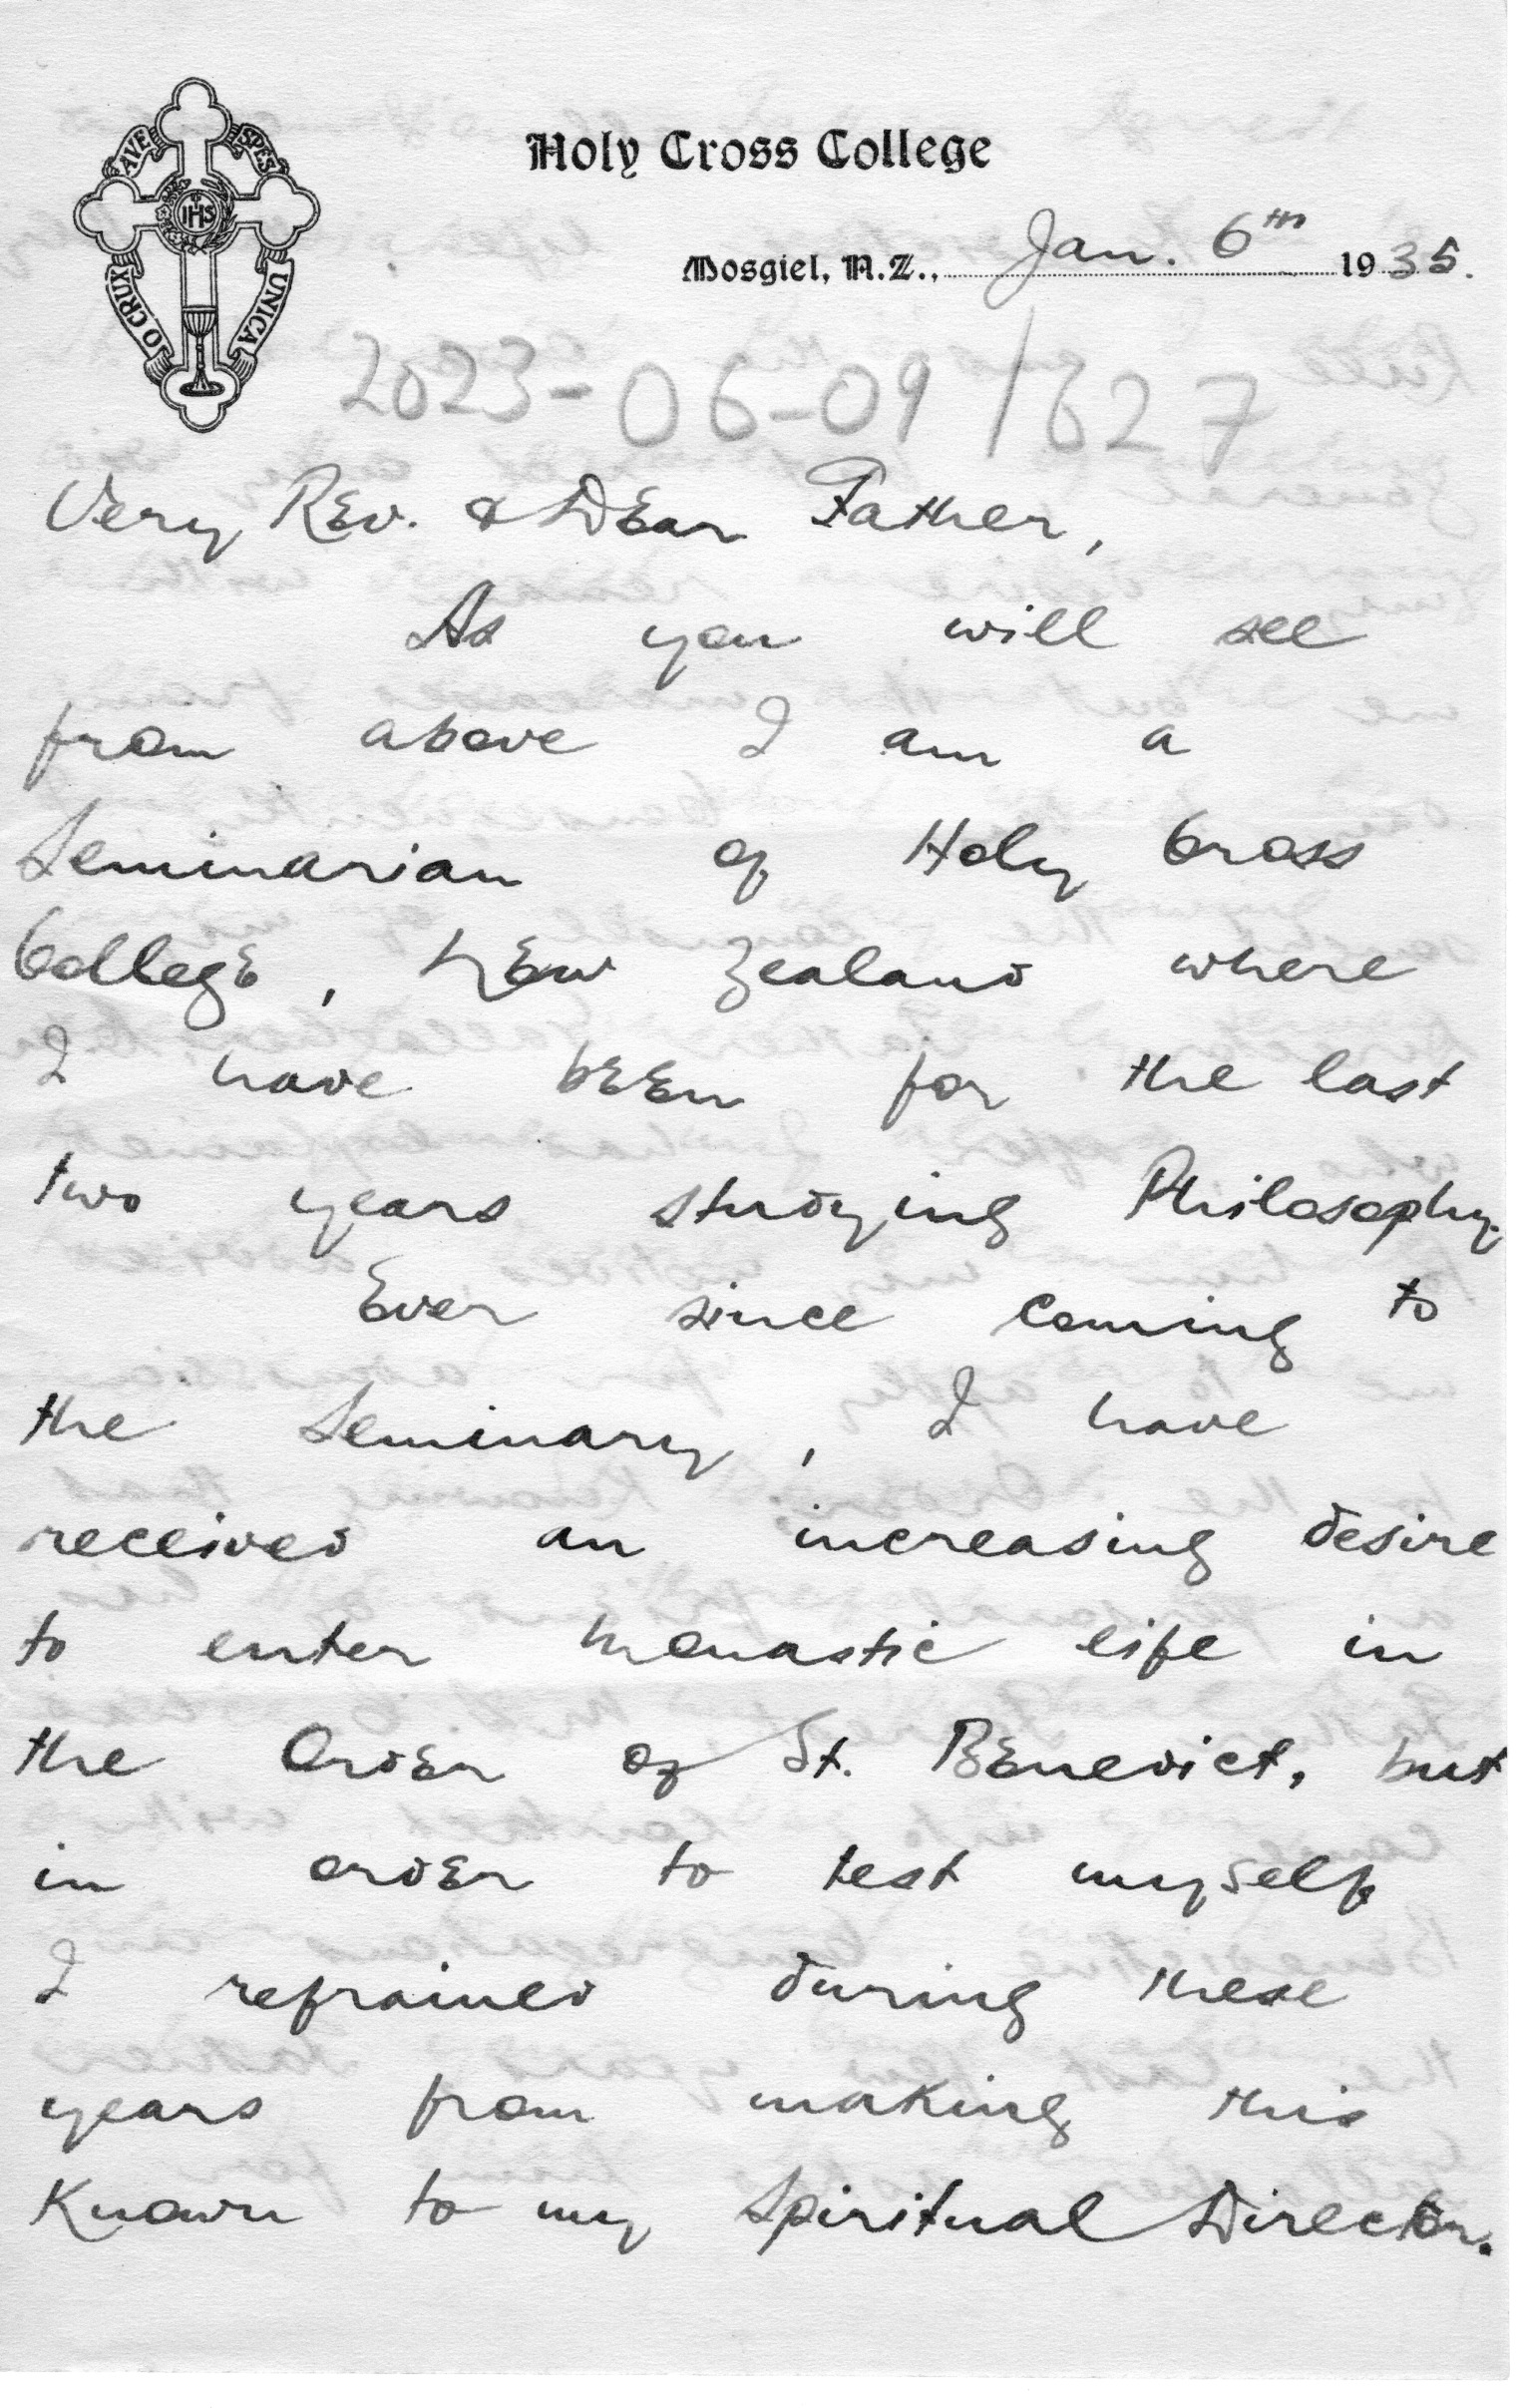 AVE SPES
IHS
O CRUX UNICA
Holy Cross College
Mosgiel, N.Z., Jan. 6th 1935.
2023-06-09/627
Very Rev. & Dear Father,
As you will see
from above I am a
Seminarian of Holy Cross
College, New Zealand where
I have been for the last
two years studying Philosophy.
Ever since coming to
the Seminary, I have
received an increasing desire
to enter monastic life in
the Order of St. Benedict, but
in order to test myself
I refrained during these
years from making this
known to my Spiritual Director.